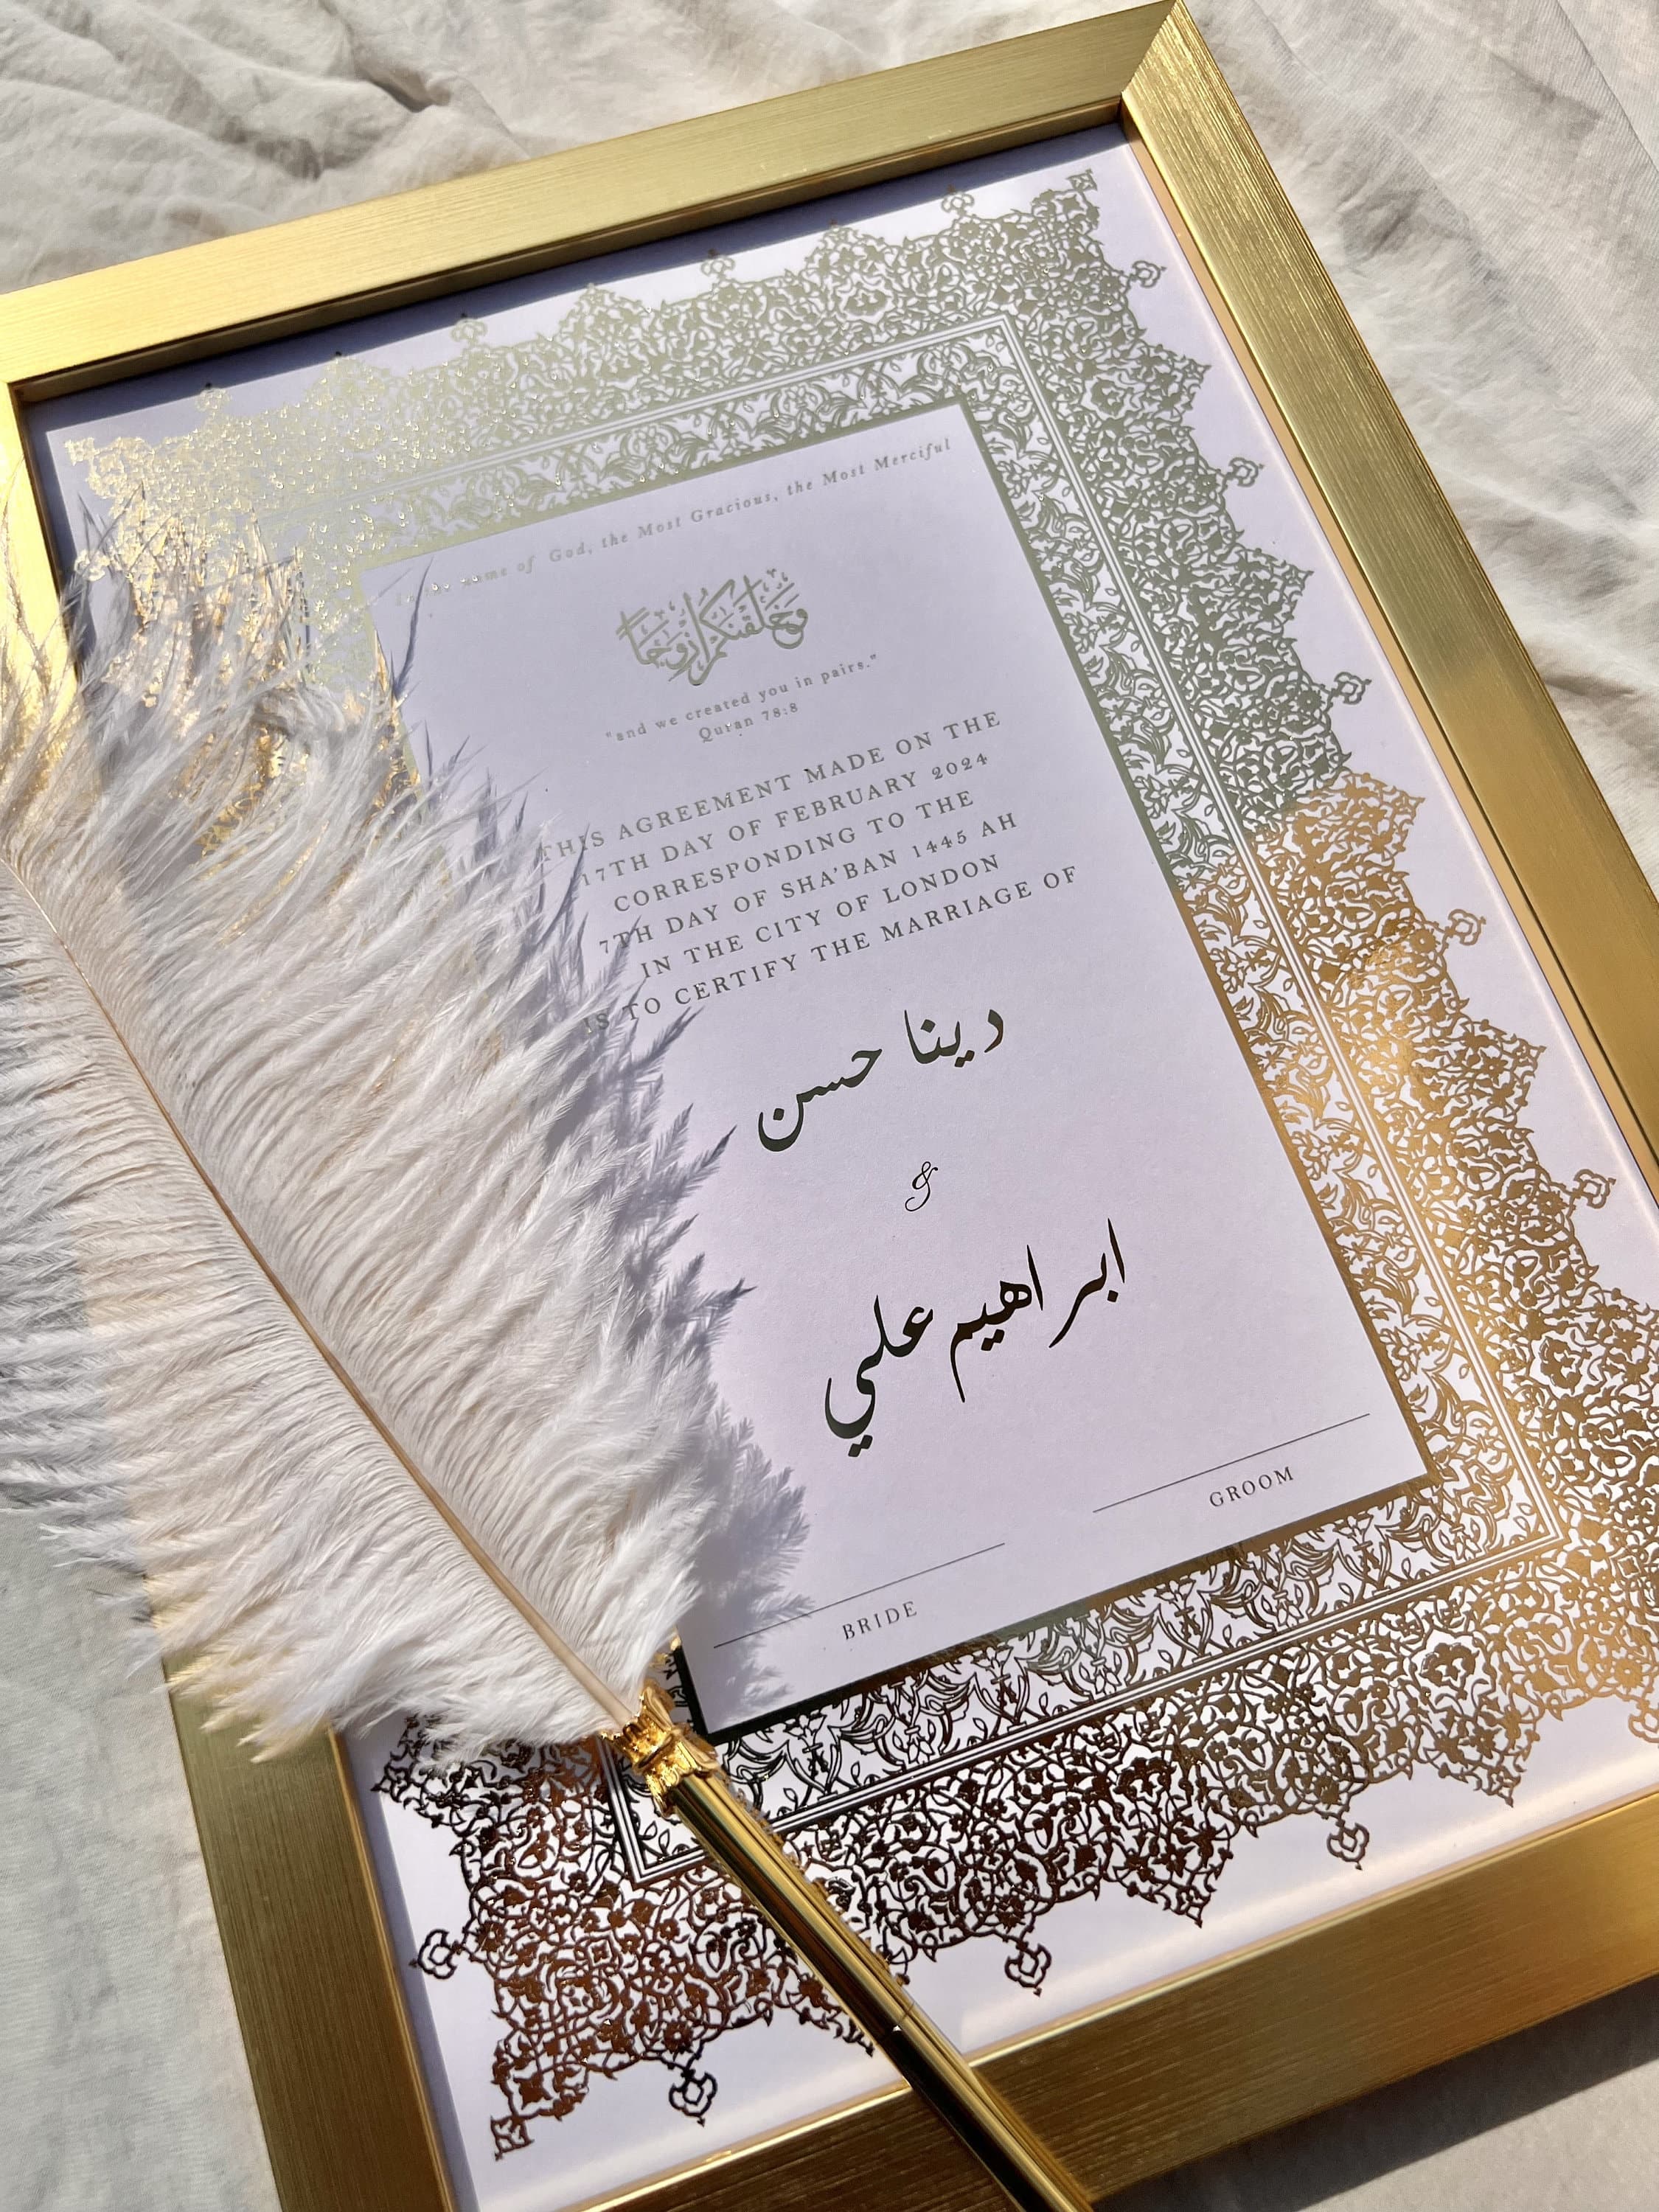 In the name of God, the Most Gracious, the Most Merciful
وَخَلَقْنَاكُمْ أَزْوَاجًا
"and we created you in pairs."
Quran 78:8
THIS AGREEMENT MADE ON THE
17TH DAY OF FEBRUARY 2024
CORRESPONDING TO THE
7TH DAY OF SHA'BAN 1445 AH
IN THE CITY OF LONDON
IS TO CERTIFY THE MARRIAGE OF
دينا حسن
&
ابراهيم علي
GROOM
BRIDE